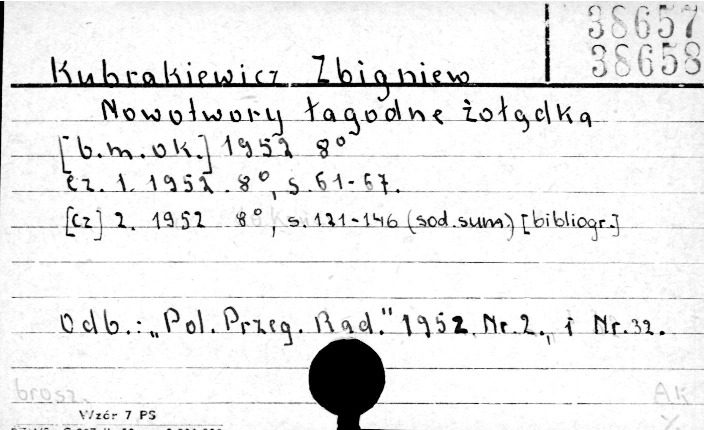 38657
38658
Kubrakiewicz Zbigniew
Nowotwory łagodne żołądka
[b.m.ok.] 1952 8°
cz. 1. 1952. 8°, s. 61-67.
[cz] 2. 1952 8°, s. 121-146 (sod. sum.) [bibliogr.]
Odb.: „Pol. Przeg. Rad." 1952. Nr. 2., i Nr. 32.
brosz.
AK
Wzór 7 PS